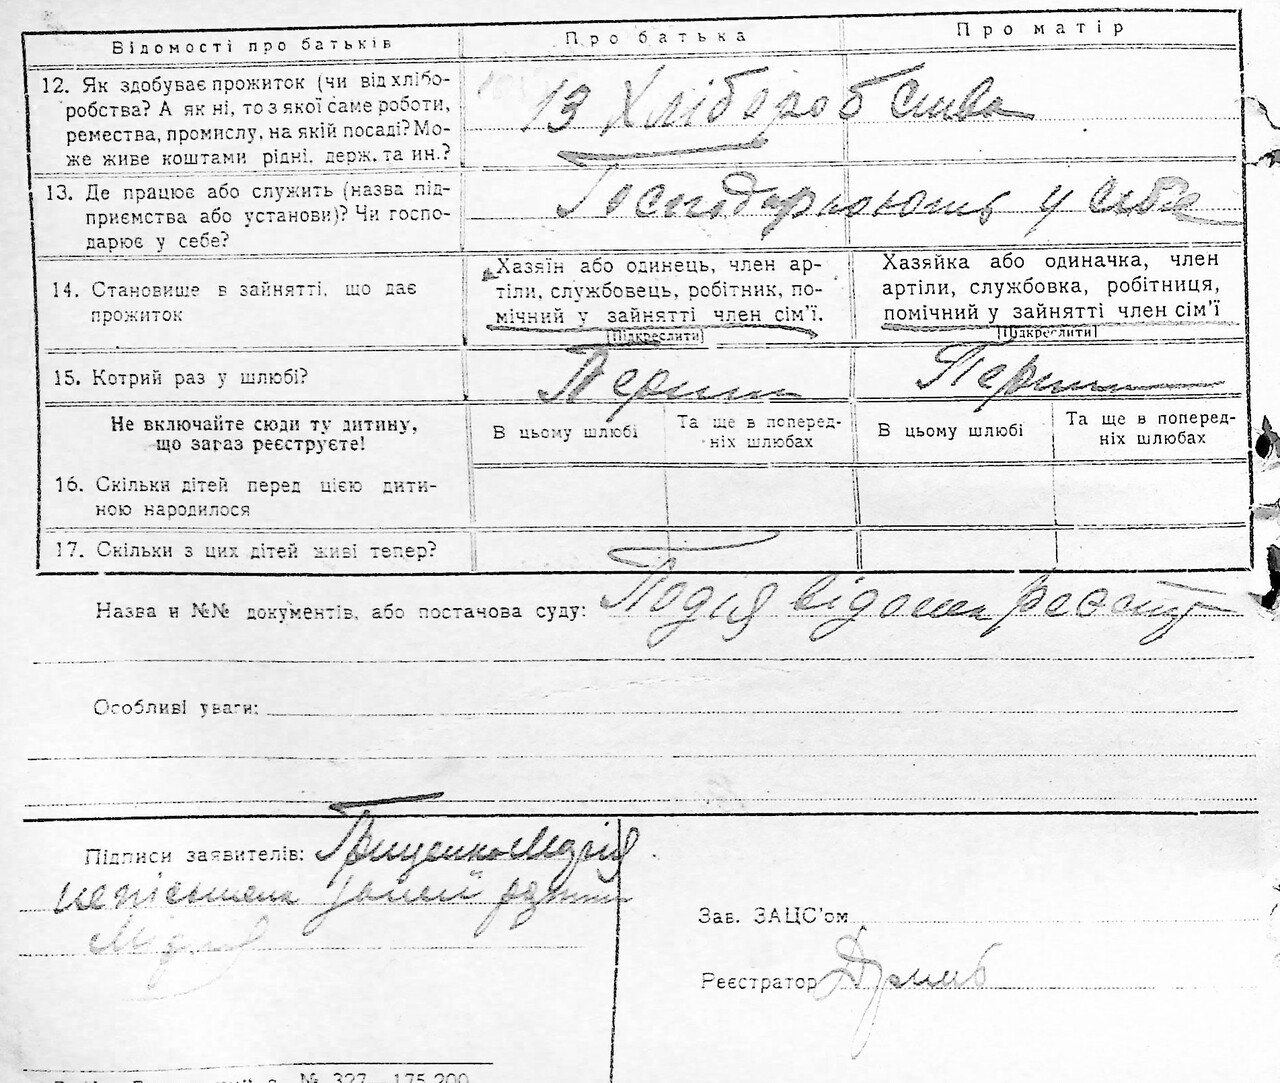 Відомості про батьків Про батька Про матір
12. Як здобуває прожиток (чи від хлібо-
робства? А як ні, то з якої саме роботи,
ремества, промислу, на якій посаді? Мо-
же живе коштами рідні, держ. та ин.?
Із Хліборобства
13. Де працює або служить (назва під-
приємства або установи)? Чи госпо-
дарює у себе?
Господарюють у себе
14. Становище в зайнятті, що дає
прожиток
Хазяїн або одинець, член ар-
тіли, службовець, робітник, по-
мічний у зайнятті член сім'ї.
[Підкреслити]
Хазяйка або одиначка, член
артіли, службовка, робітниця,
помічний у зайнятті член сім'ї
[Підкреслити]
15. Котрий раз у шлюбі?
Перши Перши
Не включайте сюди ту дитину,
що зараз реєструєте!
В цьому шлюбі
Та ще в поперед-
ніх шлюбах
В цьому шлюбі
Та ще в поперед-
ніх шлюбах
16. Скільки дітей перед цією дити-
ною народилося
17. Скільки з цих дітей живі тепер?
Назва и №№ документів, або постанова суду: Подія відома реєстр
Особливі уваги:
Підписи заявителів: Марія
неписьмена
Зав. ЗАЦС'ом
Реєстратор
№ 327—175.200